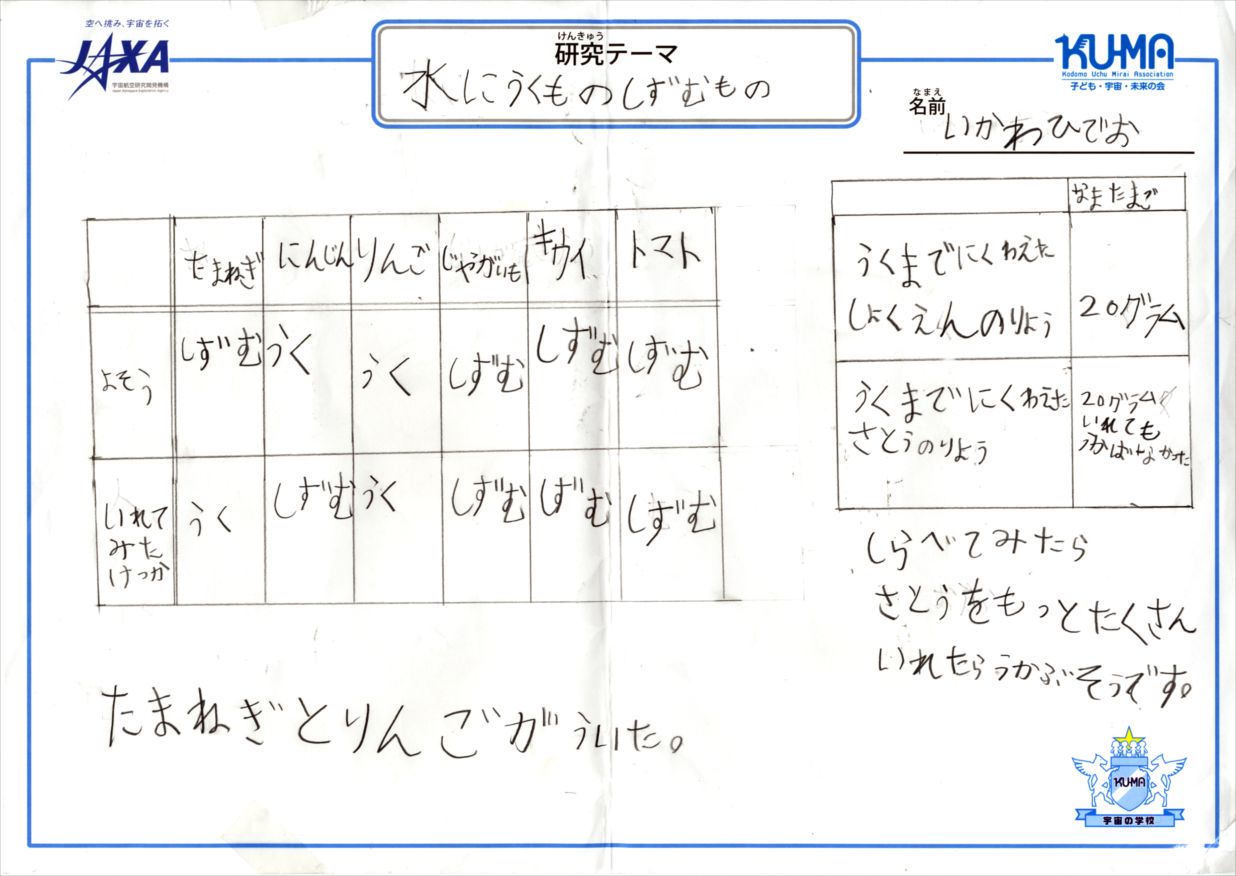 空へ挑み、宇宙を拓く
JAXA
宇宙航空研究開発機構
Japan Aerospace Exploration Agency
けんきゅう
研究テーマ
水にうくものしずむもの
KU-MA
Kodomo Uchu Mirai Association
子ども・宇宙・未来の会
なまえ
名前
いかわひでお
たまねぎ にんじん りんご じゃうがいも キウイ トマト
よそう しずむ うく うく しずむ しずむ しずむ
いれて
みた
けっか うく しずむ うく しずむ しずむ しずむ
たまねぎとりんごがういた。
なまたまご
うくまでにくわえた
しょくえんのりょう 20グラム
うくまでにくわえた
さとうのりよう
20グラム
いれても
うかばなかった
しらべてみたら
さとうをもっとたくさん
いれたらうかぶそうです。
KU-MA
宇宙の学校